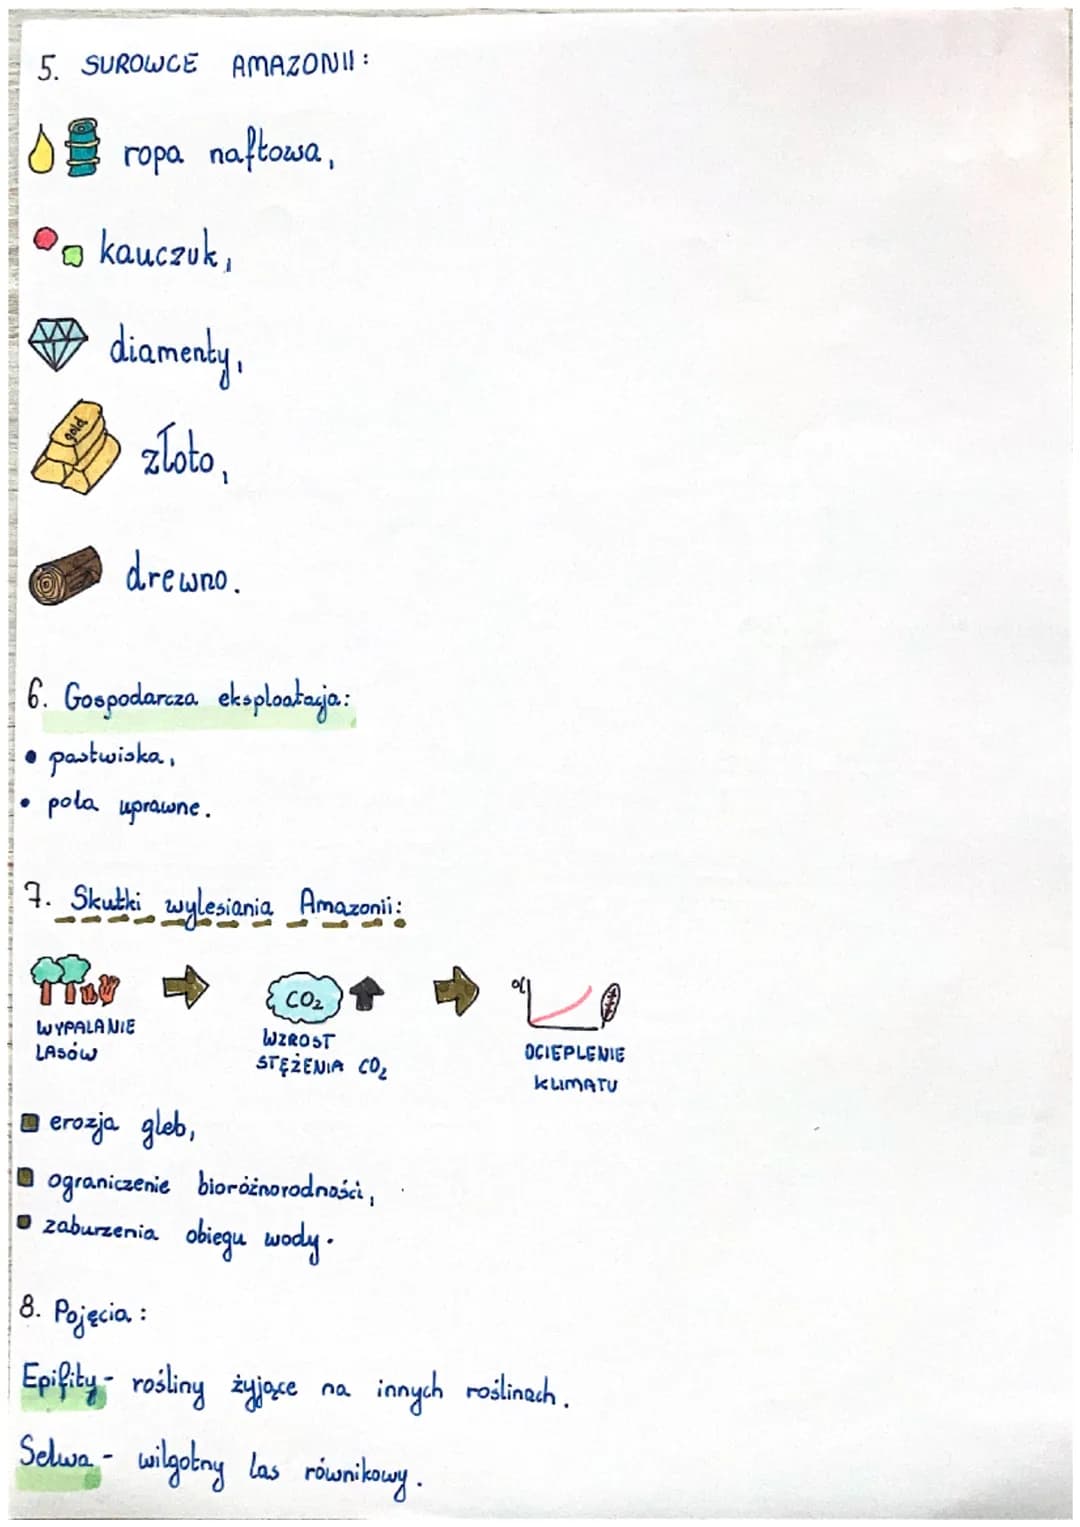 5. SUROWCE AMAZONII:
ropa naftowa,
kauczuk,
diamenty,
gold
złoto,
drewno.
6. Gospodarcza eksploatacja:
• pastwiska,
• pola uprawne.
7. Skutki wylesiania Amazonii:
WYPALANIE
LASÓW
CO₂
WZROST
STĘŻENIA CO₂
OCIEPLENIE
KLIMATU
erozja gleb,
ograniczenie bioróżnorodności,
zaburzenia obiegu wody.
8. Pojęcia:
Epifity - rośliny żyjące na innych roślinach.
Selwa - wilgotny las równikowy.